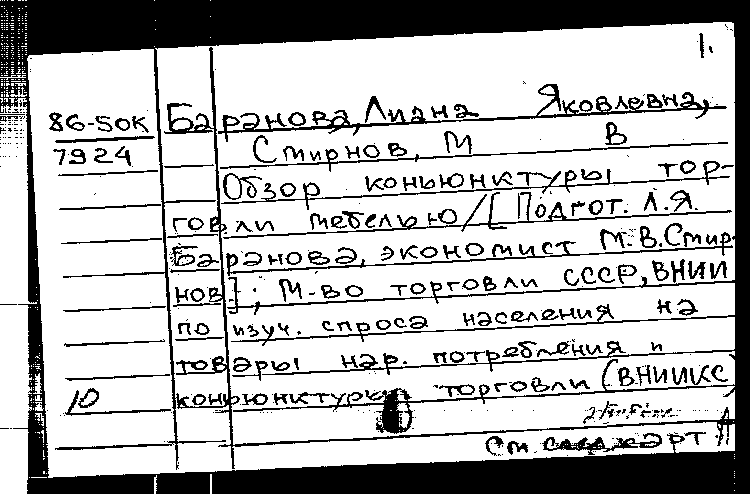 1.
86-50К Баранова, Лиана Яковлевна,
7924 Смирнов, М В
Обзор коньюнктуры тор-
говли мебелью/[Подгот. Л.Я.
Баранова, экономист М.В.Смир-
нов]; М-во торговли СССР, ВНИИ
по изуч. спроса населения на
товары нар. потребления и
10 коньюнктуры торговли (ВНИИКС)
См. след. карт